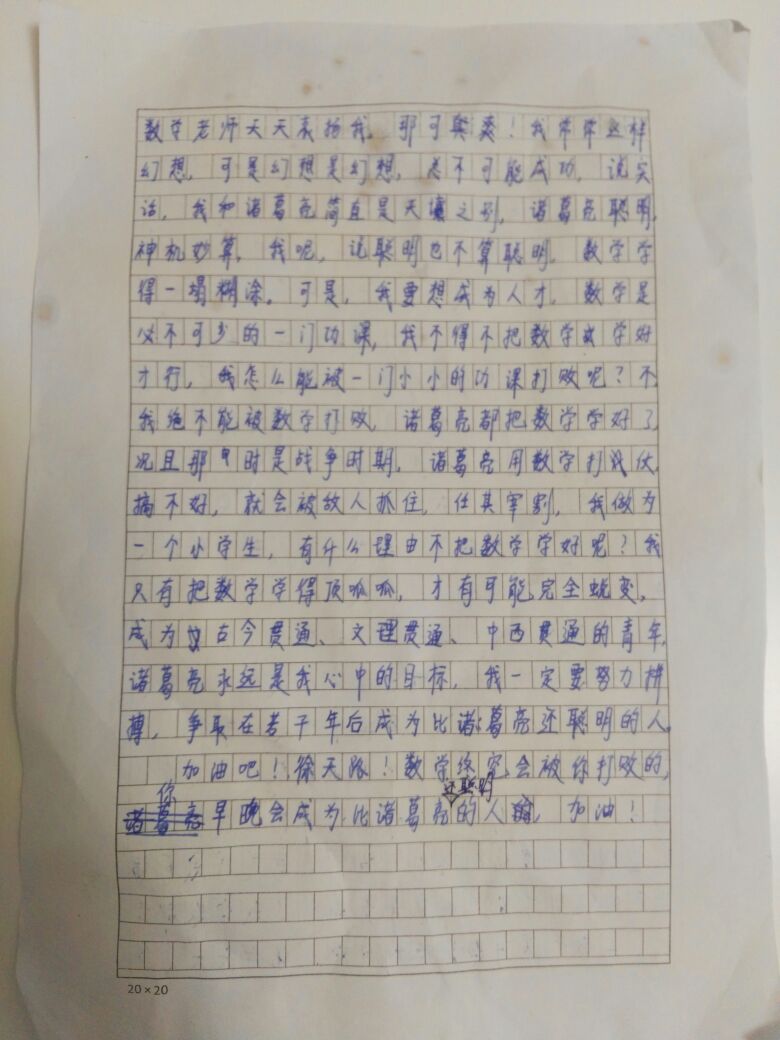 数学老师天天表扬我，那可真爽！我常常这样
幻想，可是幻想是幻想，总不可能成功，说实
话，我和诸葛亮简直是天壤之别，诸葛亮聪明，
神机妙算，我呢，说聪明也不算聪明，数学学
得一塌糊涂。可是，我要想成为人才，数学是
必不可少的一门功课，我不得不把数学学好
才行，我怎么能被一门小小的功课打败呢？不
我绝不能被数学打败，诸葛亮都把数学学好了
况且那时是战争时期，诸葛亮用数学打战伏，
搞不好，就会被敌人抓住，任其宰割，我做为
一个小学生，有什么理由不把数学学好呢？我
只有把数学学得顶呱呱，才有可能完全蜕变，
成为古今贯通、文理贯通、中西贯通的青年，
诸葛亮永远是我心中的目标，我一定要努力拼
搏，争取在若干年后成为比诸葛亮还聪明的人，
加油吧！徐天路！数学终究会被你打败的，
你早晚会成为比诸葛亮还聪明的人，加油！
20×20